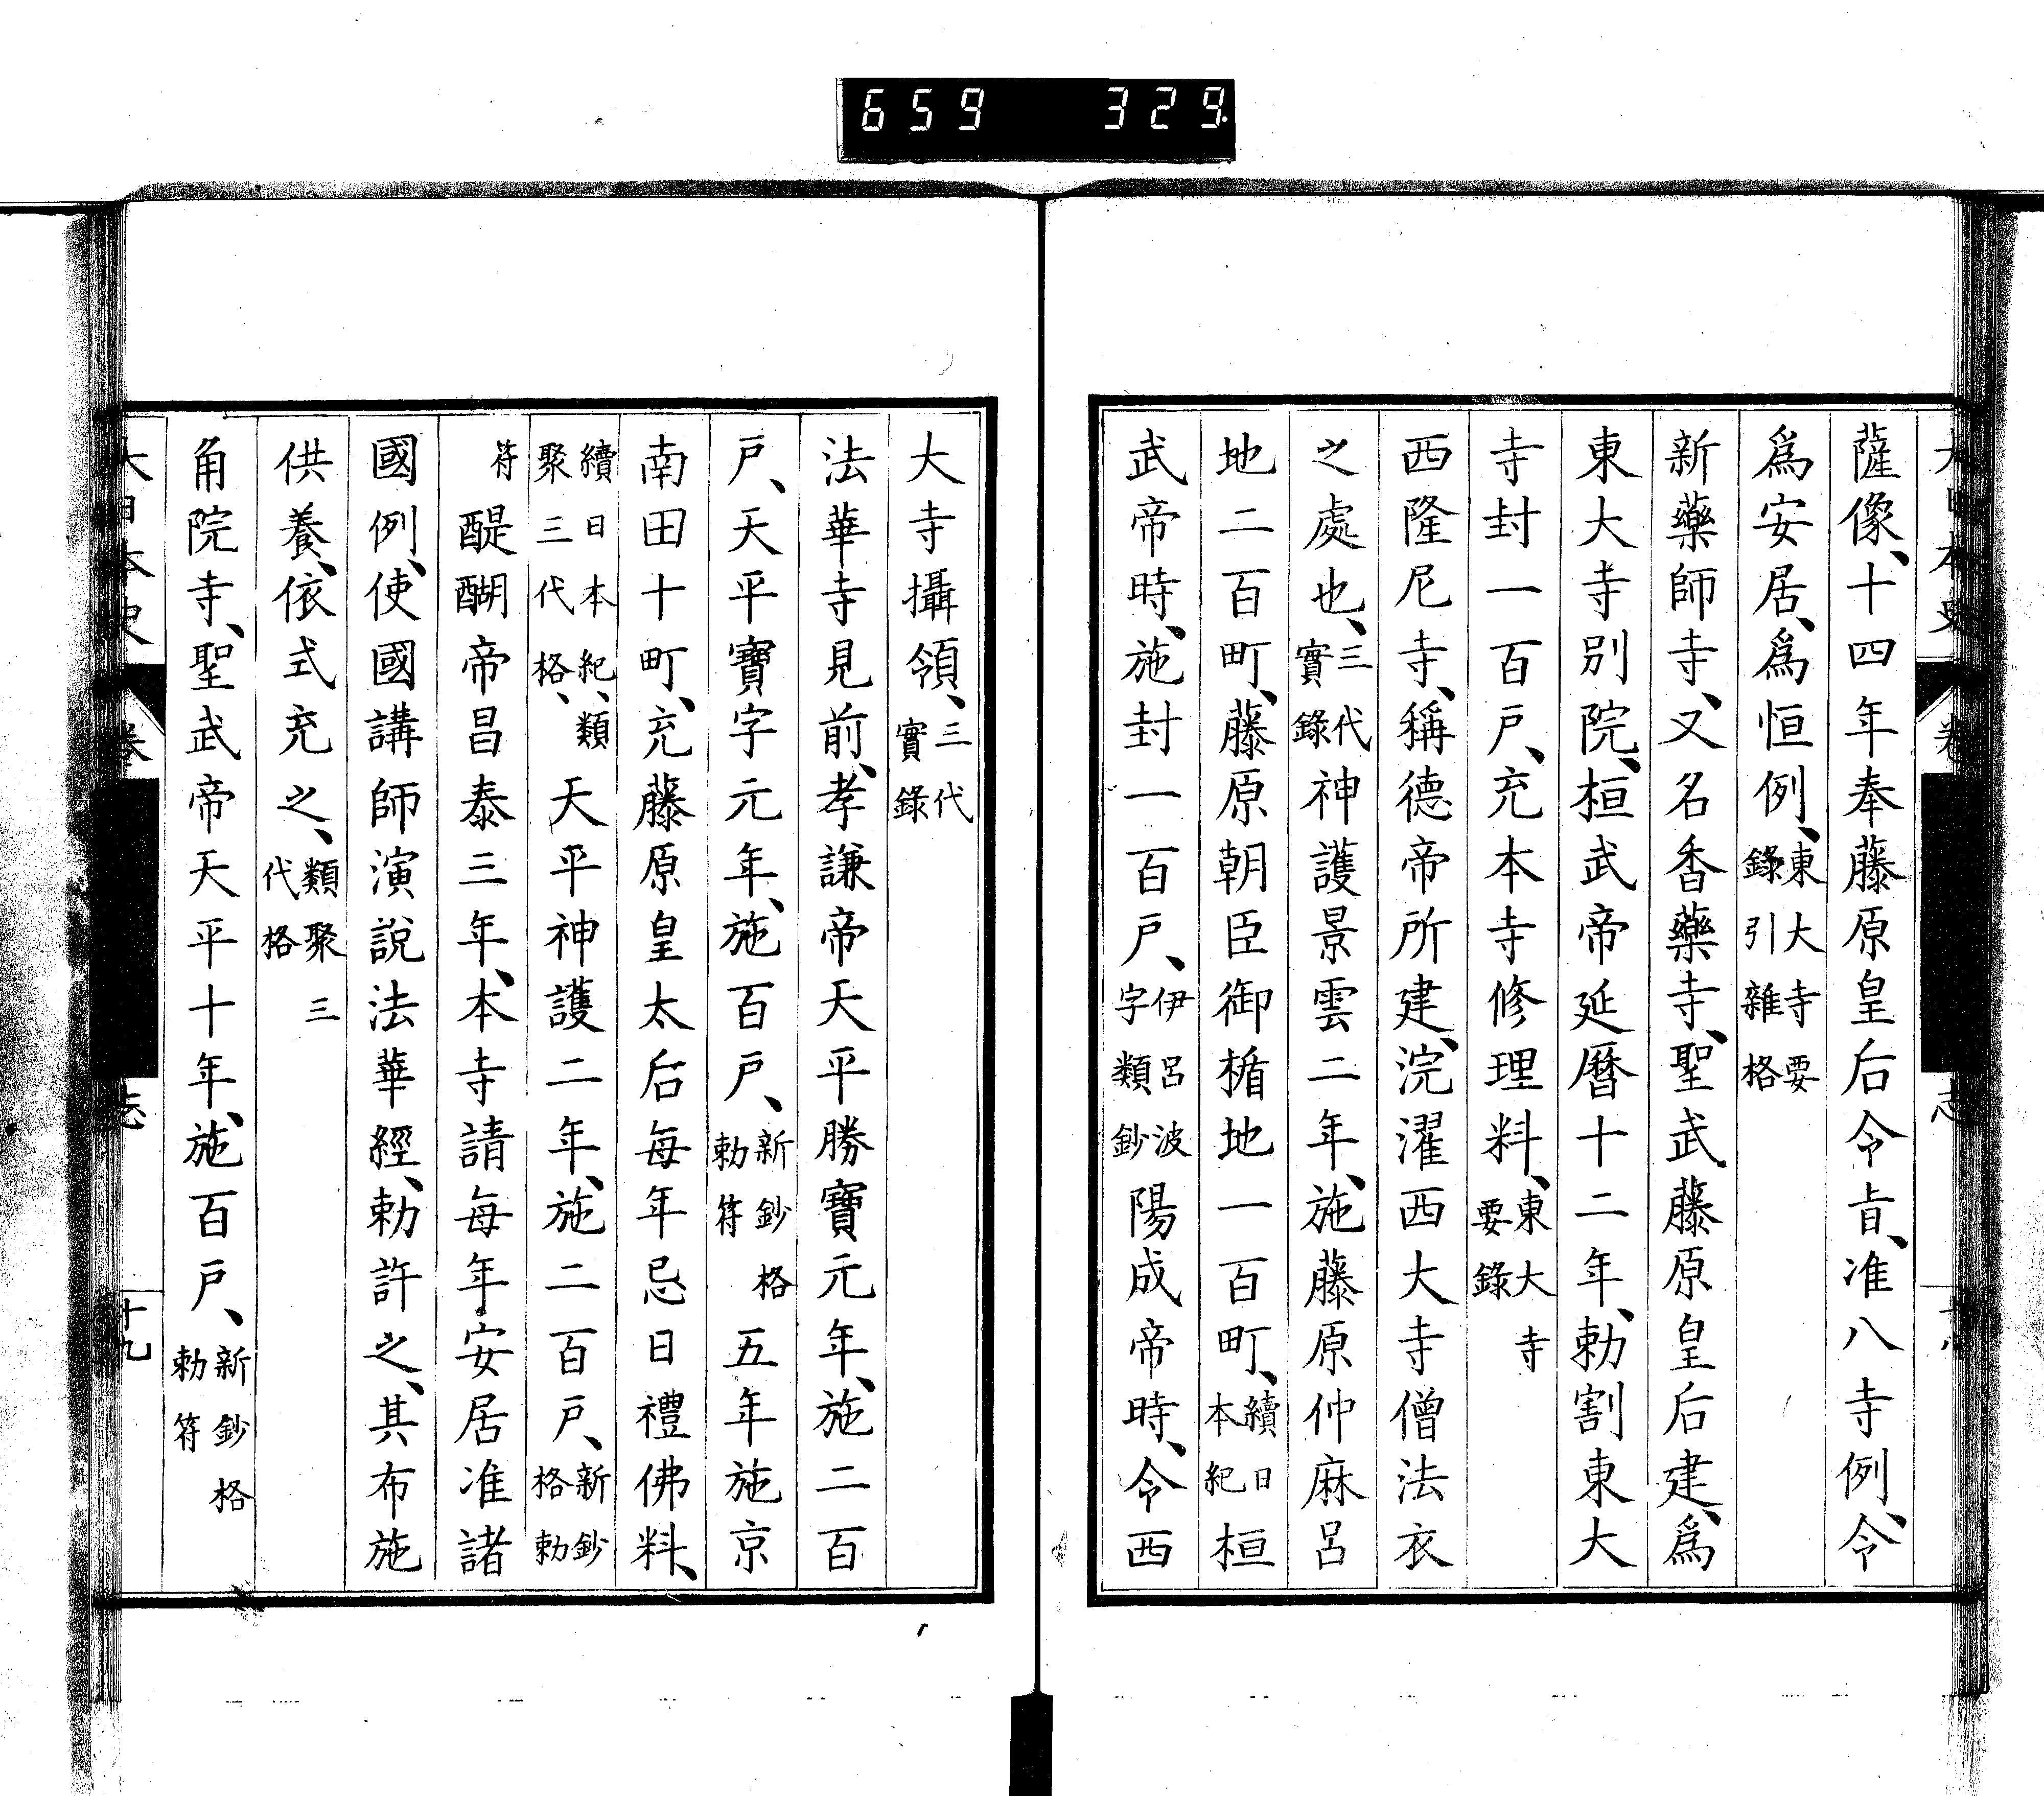 659 329
薩像、十四年奉藤原皇后令旨、准八寺例、令
爲安居、爲恒例、東大寺要錄引雜格
新藥師寺、又名香藥寺、聖武藤原皇后建、爲
東大寺別院、桓武帝延曆十二年、勅割東大
寺封一百戶、充本寺修理料、東大寺要錄
西隆尼寺、稱德帝所建、浣濯西大寺僧法衣
之處也、三代實錄神護景雲二年、施藤原仲麻呂
地二百町、藤原朝臣御楯地一百町、續日本紀桓
武帝時、施封一百戶、伊呂波字類鈔陽成帝時、令西
大寺攝領、三代實錄
法華寺見前、孝謙帝天平勝寶元年、施二百
戶、天平寶字元年、施百戶、新鈔格勅符五年施京
南田十町、充藤原皇太后每年忌日禮佛料、
續日本紀、類聚三代格、天平神護二年、施二百戶、新鈔格勅
符醍醐帝昌泰三年、本寺請每年安居准諸
國例、使國講師演說法華經、勅許之、其布施
供養、依式充之、類聚三代格
角院寺、聖武帝天平十年、施百戶、新鈔格勅符
大日本史 卷 志 十九